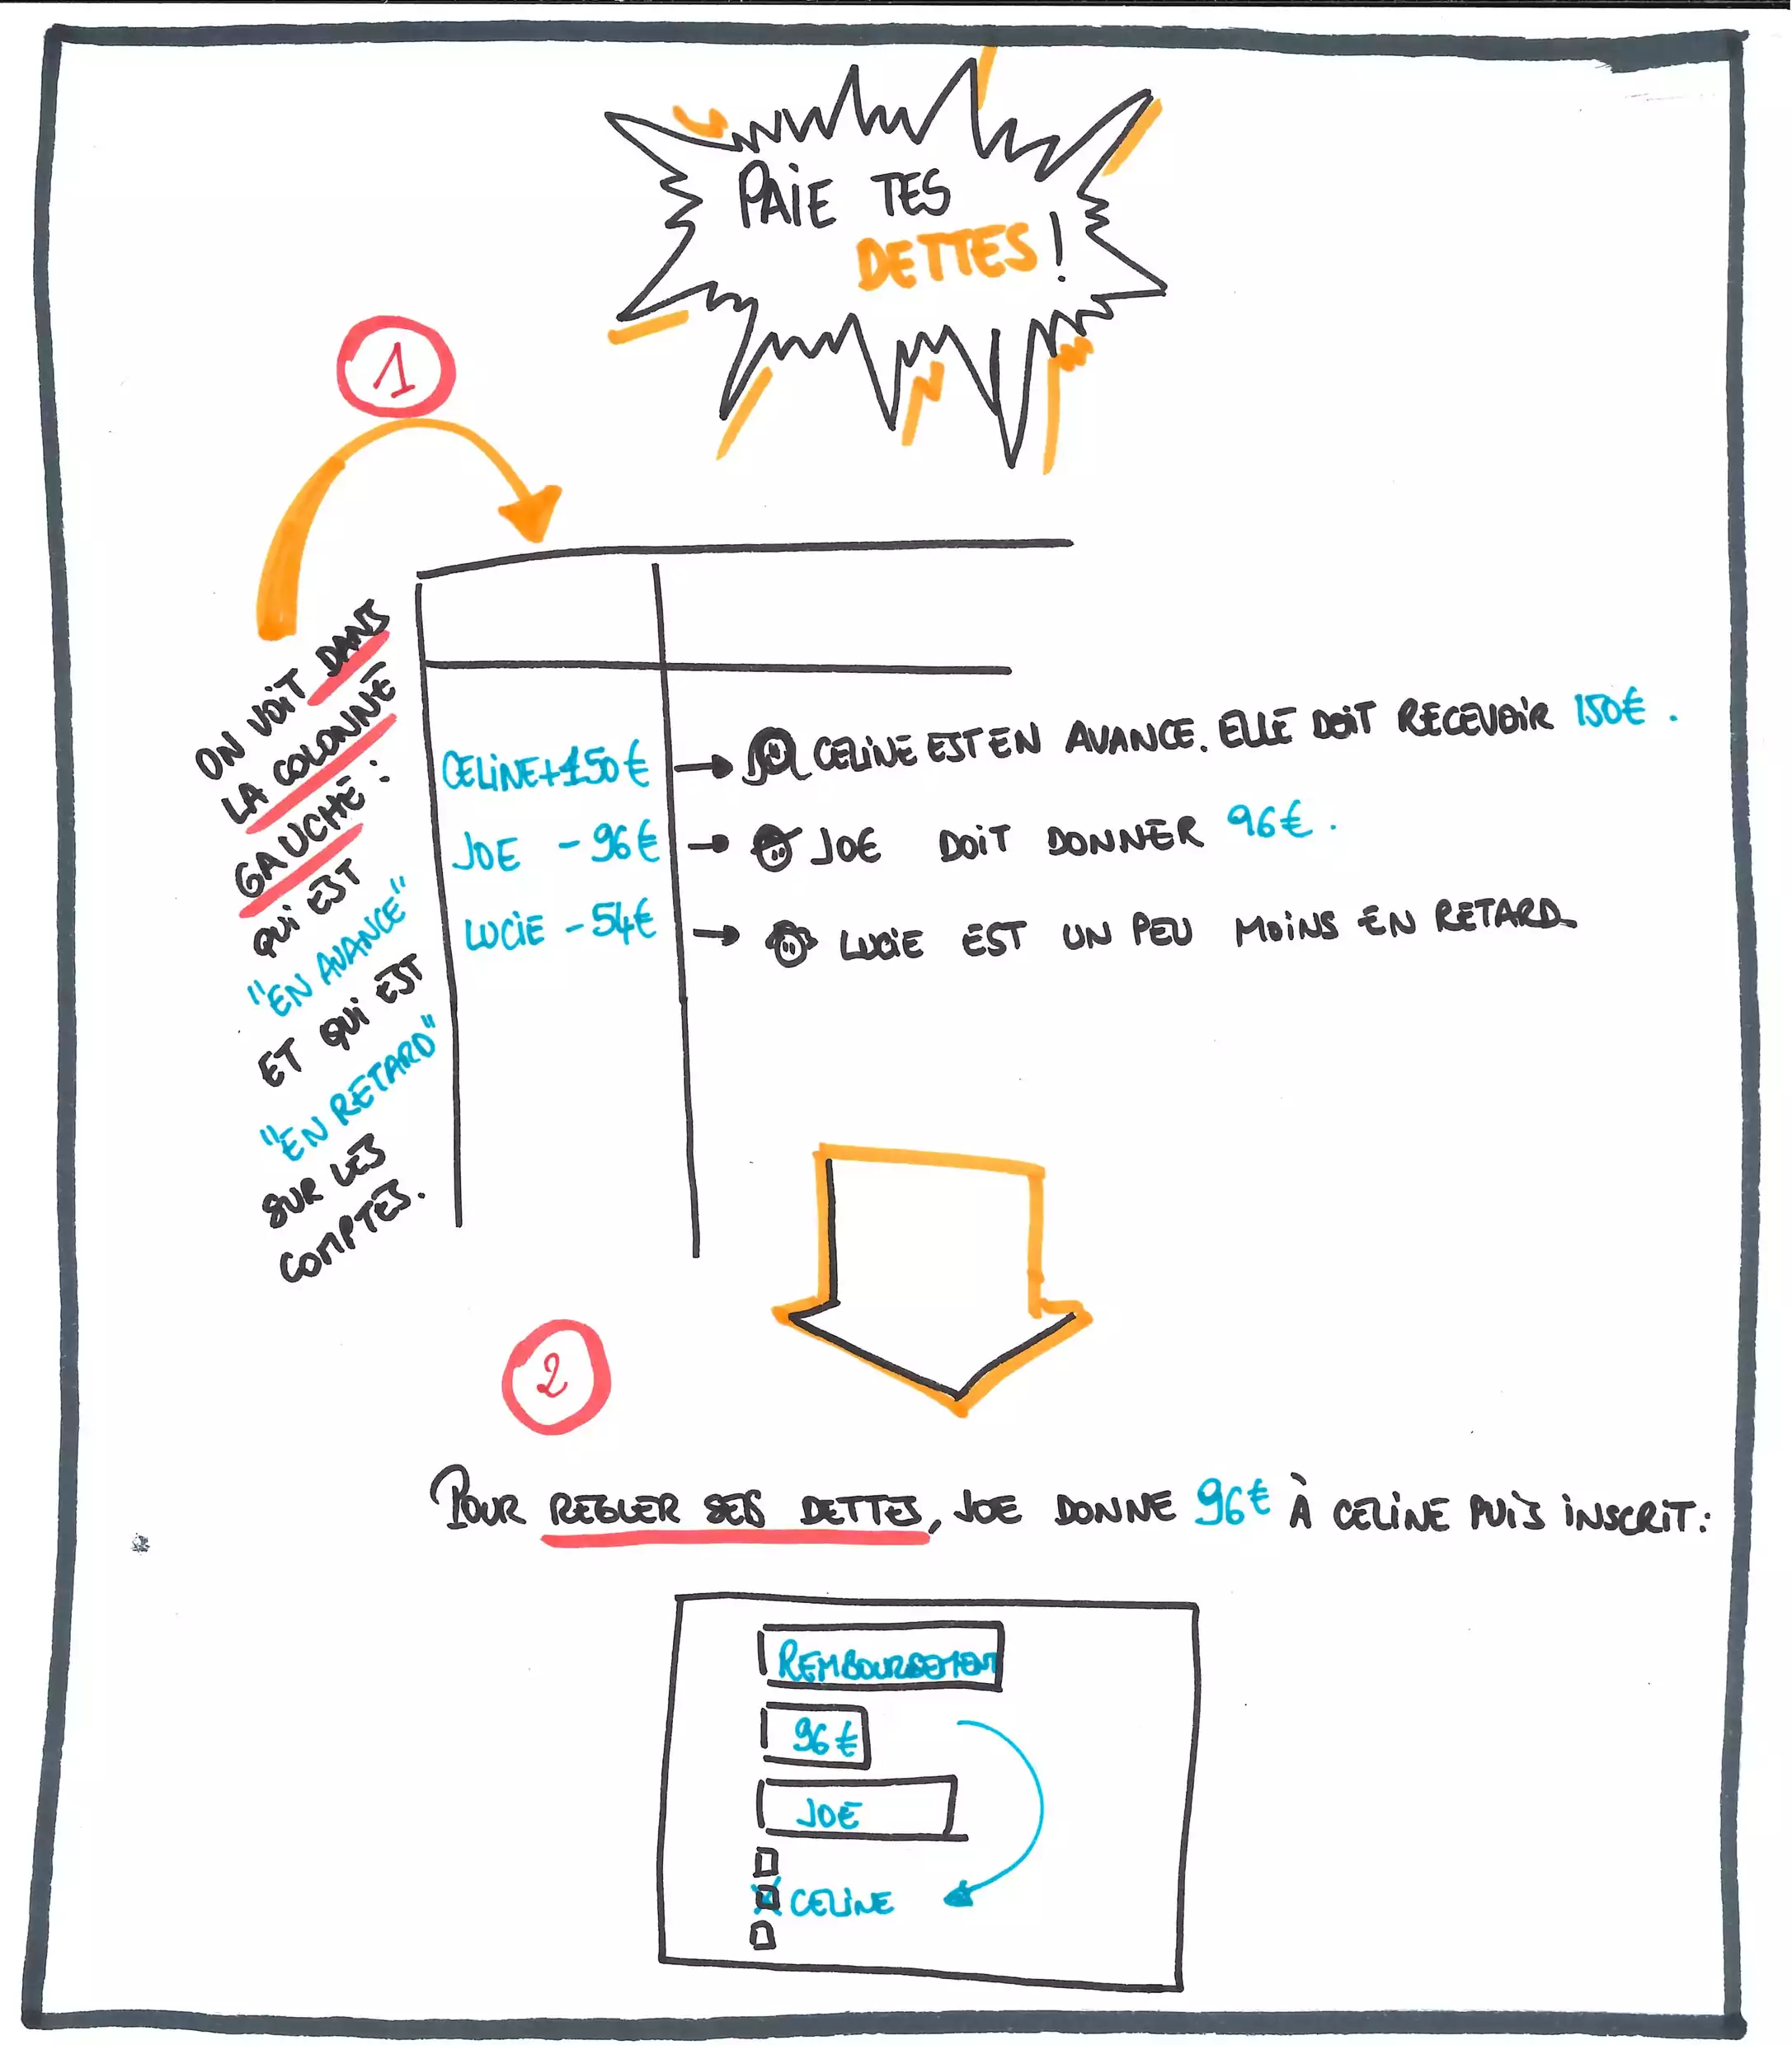 PAIE TES
DETTES!
1
ON VOIT DANS
LA COLONNE
GAUCHE:
QUI EST
"EN AVANCE"
ET QUI EST
"EN RETARD"
SUR LES
COMPTES.
CELINE+150€ → CELINE EST EN AVANCE. ELLE DOIT RECEVOIR 150€.
JOE -96€ → JOE DOIT DONNER 96€.
LUCIE -54€ → LUCIE EST UN PEU MOINS EN RETARD
2
POUR REGLER SES DETTES, JOE DONNE 96€ À CELINE PUIS INSCRIT:
REMBOURSEMENT
96€
JOE
CELINE